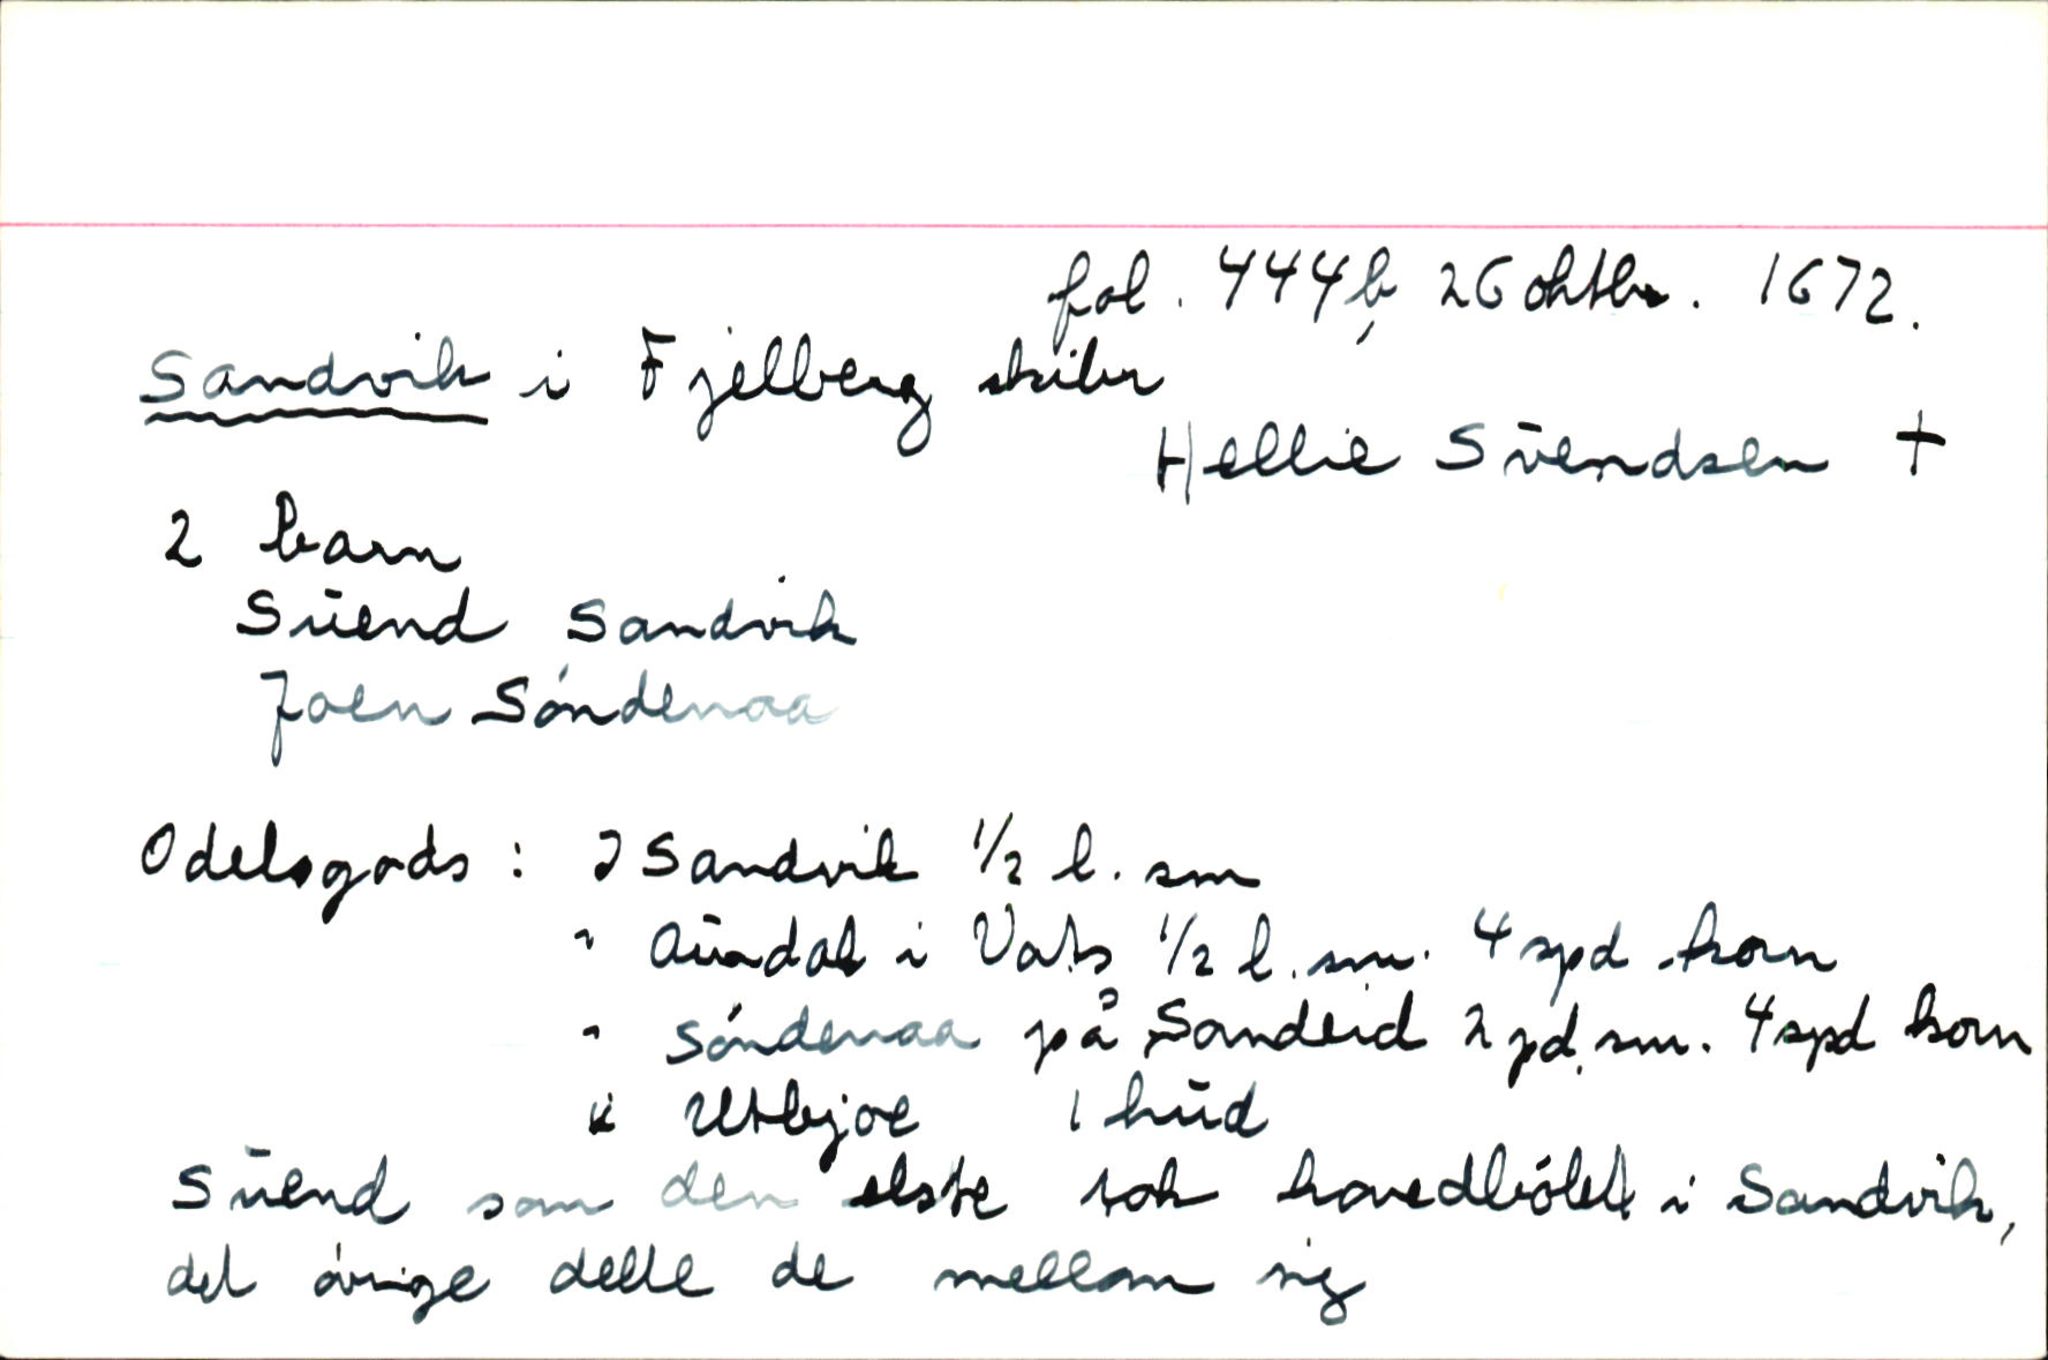 fol. 444b, 26 oktbr. 1672.
Sandvik i Fjelberg skibr
Hellie Svendsen †
2 barn
Sŭend Sandvik
Joen Söndenaa
Odelsgods : I Sandvik 1/2 l. sm
" Aŭndal i Vats 1/2 l. sm. 4 spd korn
" Söndenaa på Sandeid 2 pd. sm. 4 spd korn
" Utbjoe 1 hŭd
Sŭend som den elste tok hovedbölet i Sandvik,
det övrige delte de mellom sig